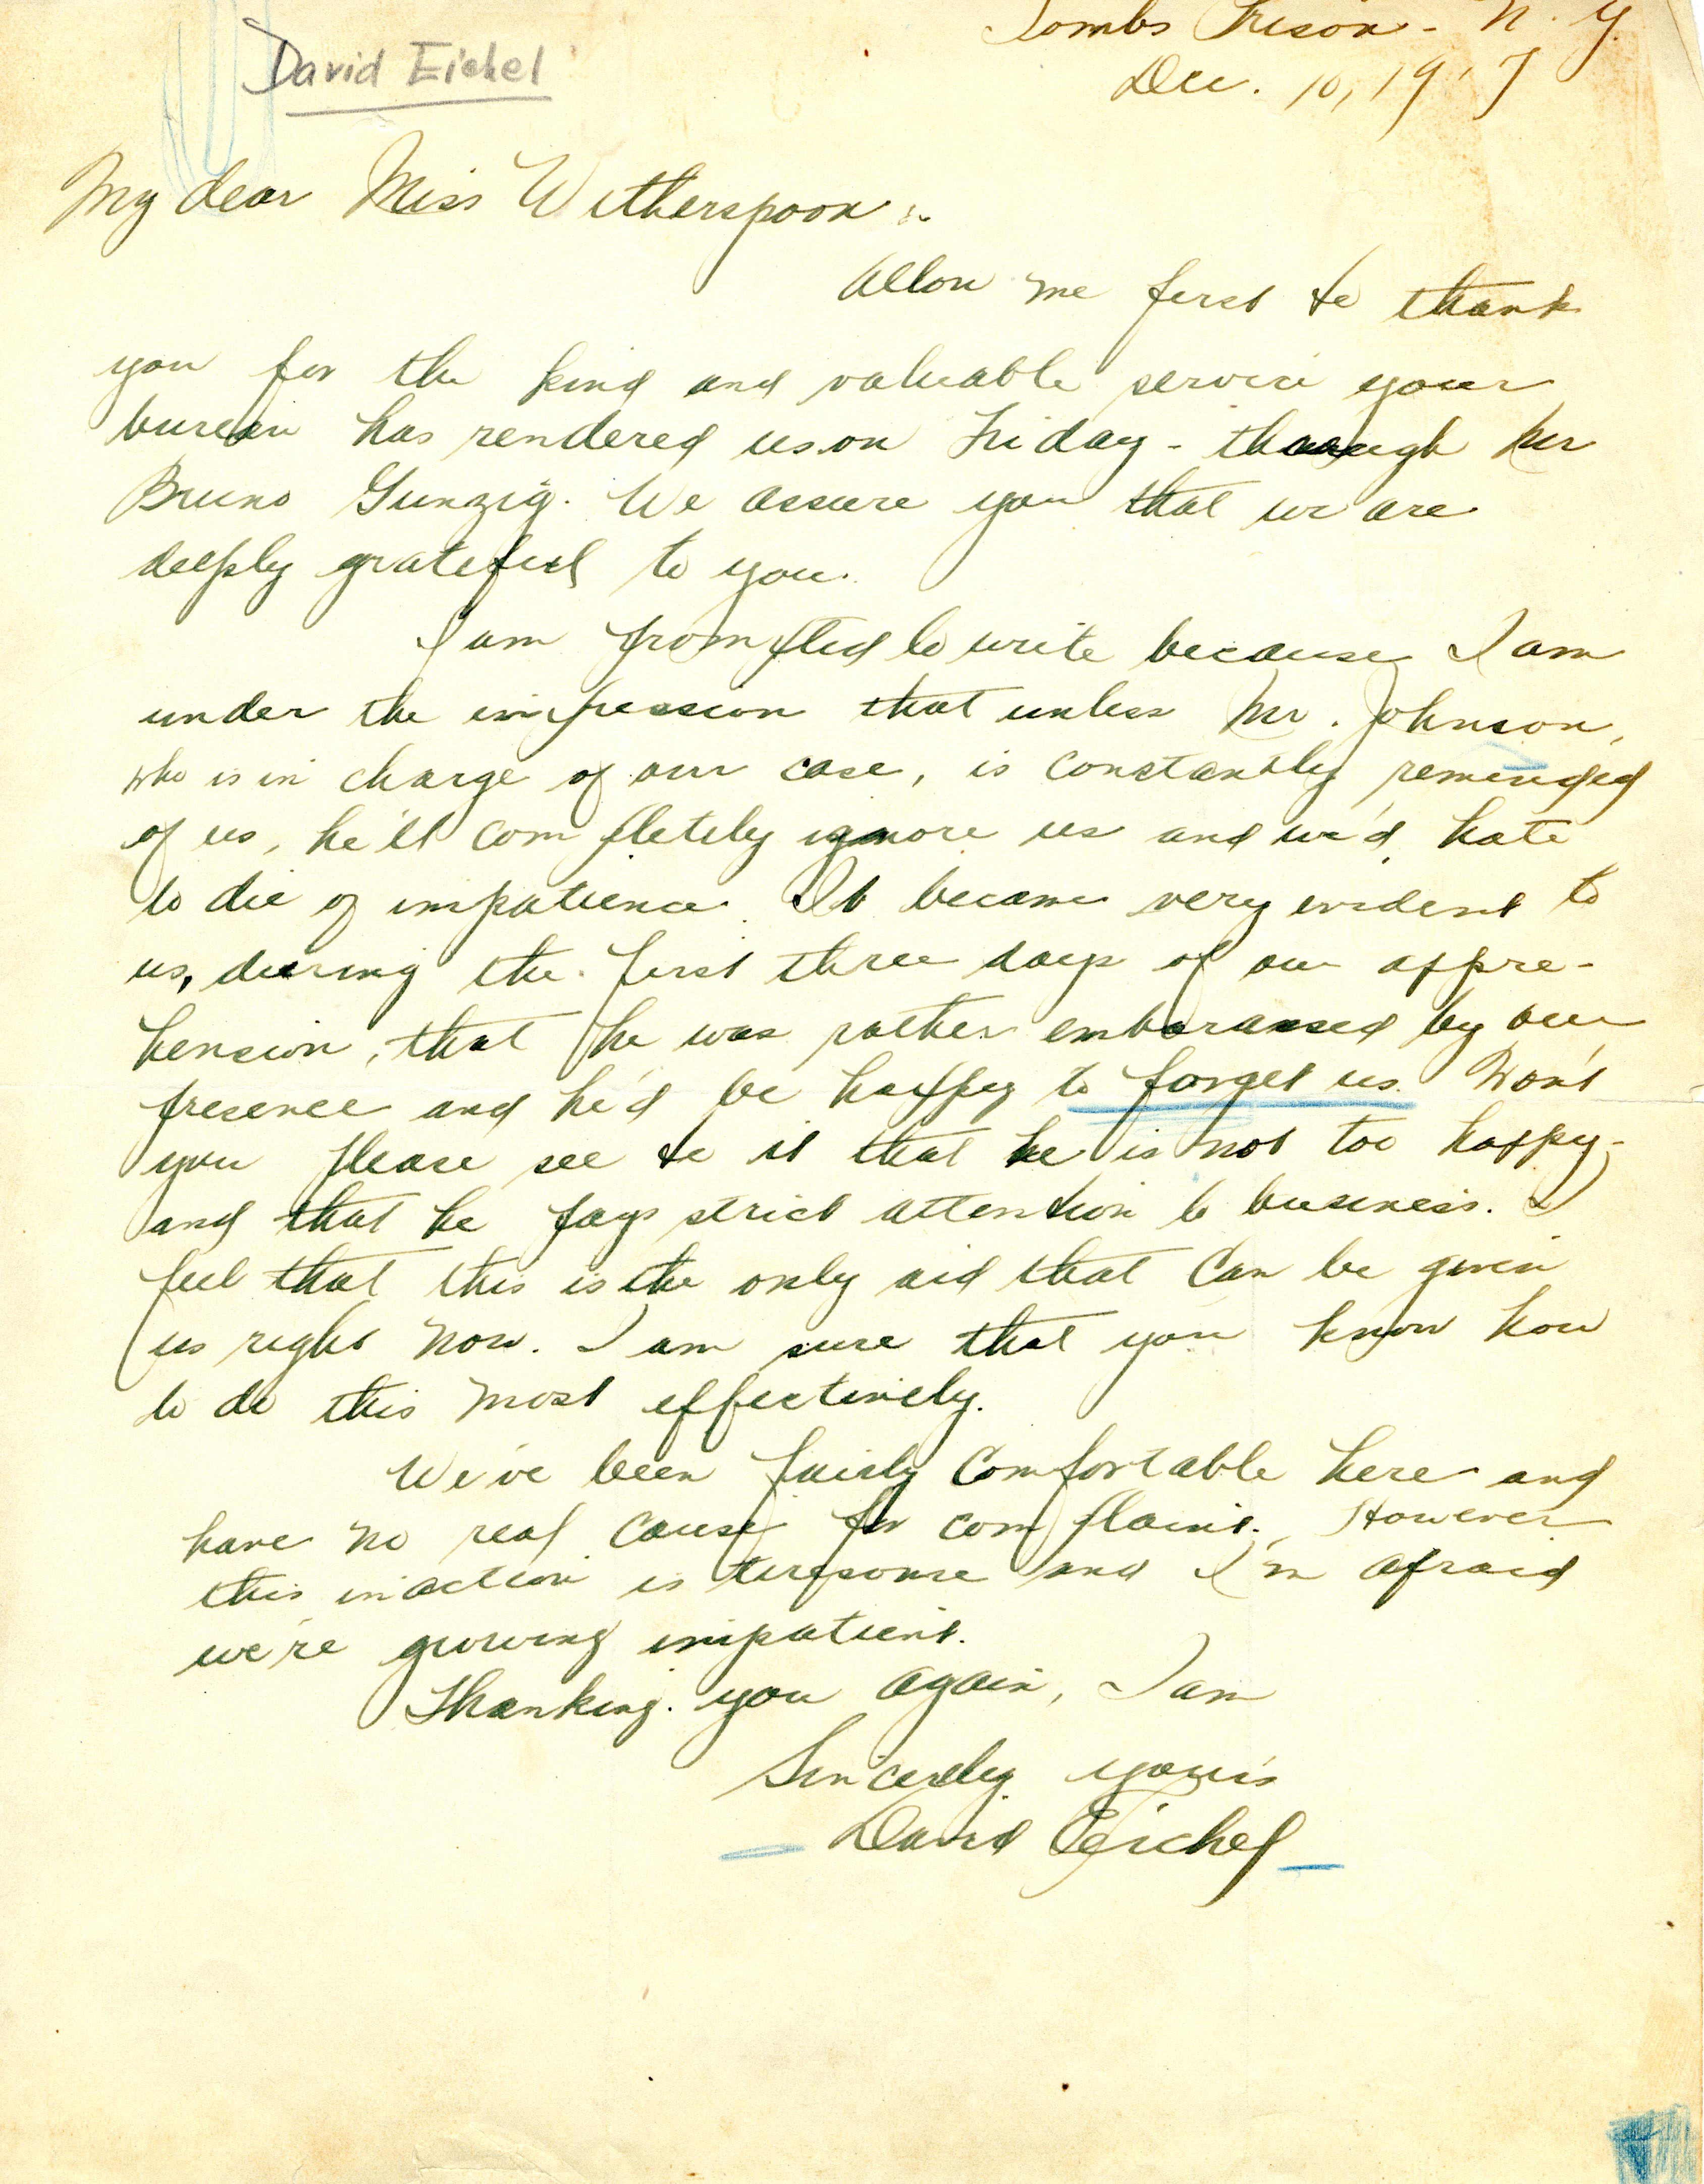 Tombs Prison - N. Y.
Dec. 10, 1917
David Eichel
My dear Miss Witherspoon :-
Allow me first to thank
you for the kind and valuable service your
bureau has rendered us on Friday - through Mr
Bruno Gunzig. We assure you that we are
deeply grateful to you.
I am prompted to write because I am
under the impression that unless Mr. Johnson,
who is in charge of our case, is constantly reminded
of us, he'll completely ignore us and we'd hate
to die of impatience. It became very evident to
us, during the first three days of our appre-
hension, that he was rather embarassed by our
presence and he'd be happy to forget us. Won't
you please see to it that he is not too happy -
and that he pays strict attention to business. I
feel that this is the only aid that can be given
us right now. I am sure that you know how
to do this most effectively.
We've been fairly comfortable here and
have no real cause for complaint. However
this inaction is tiresome and I'm afraid
we're growing impatient.
Thanking you again, I am
Sincerely yours
David Eichel